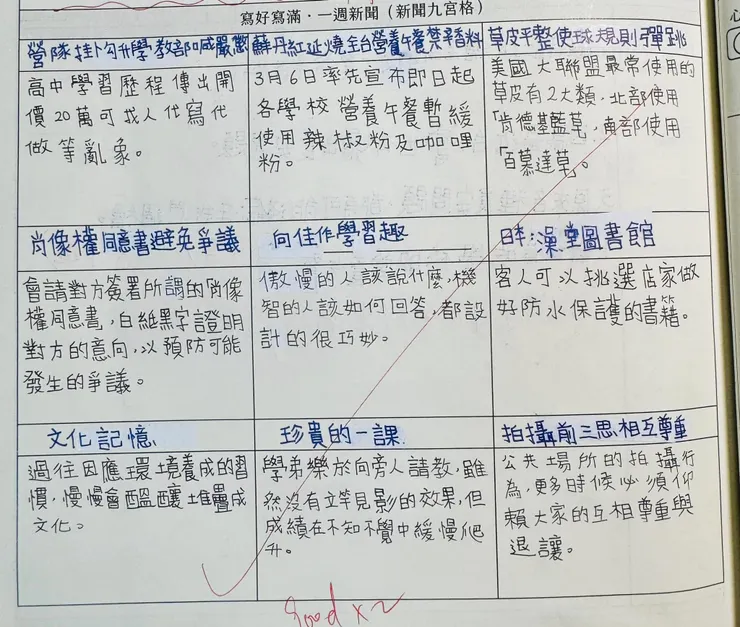 寫好寫滿．一週新聞（新聞九宮格）
營隊掛勾升學教部喊嚴懲
高中學習歷程傳出開
價20萬可找人代寫代
做等亂象。
蘇丹紅延燒全台營養午餐禁香料
3月6日率先宣布即日起
各學校營養午餐暫緩
使用辣椒粉及咖哩
粉。
草皮平整使球規則彈跳
美國大聯盟最常使用的
草皮有2大類，北部使用
「肯德基藍草」，南部使用
「百慕達草」。
肖像權同意書避免爭議
會請對方簽署所謂的「肖像
權同意書」，白紙黑字證明
對方的意向，以預防可能
發生的爭議。
向佳作學習趣
傲慢的人該說什麼，機
智的人該如何回答，都設
計的很巧妙。
日本：澡堂圖書館
客人可以挑選店家做
好防水保護的書籍。
文化記憶
過往因應環境養成的習
慣，慢慢會醞釀堆疊成
文化。
珍貴的一課
學弟樂於向旁人請教，雖
然沒有立竿見影的效果，但
成績在不知不覺中緩慢爬
升。
拍攝前三思相互尊重
公共場所的拍攝行
為，更多時候必須仰
賴大家的互相尊重與
退讓。
Good x2